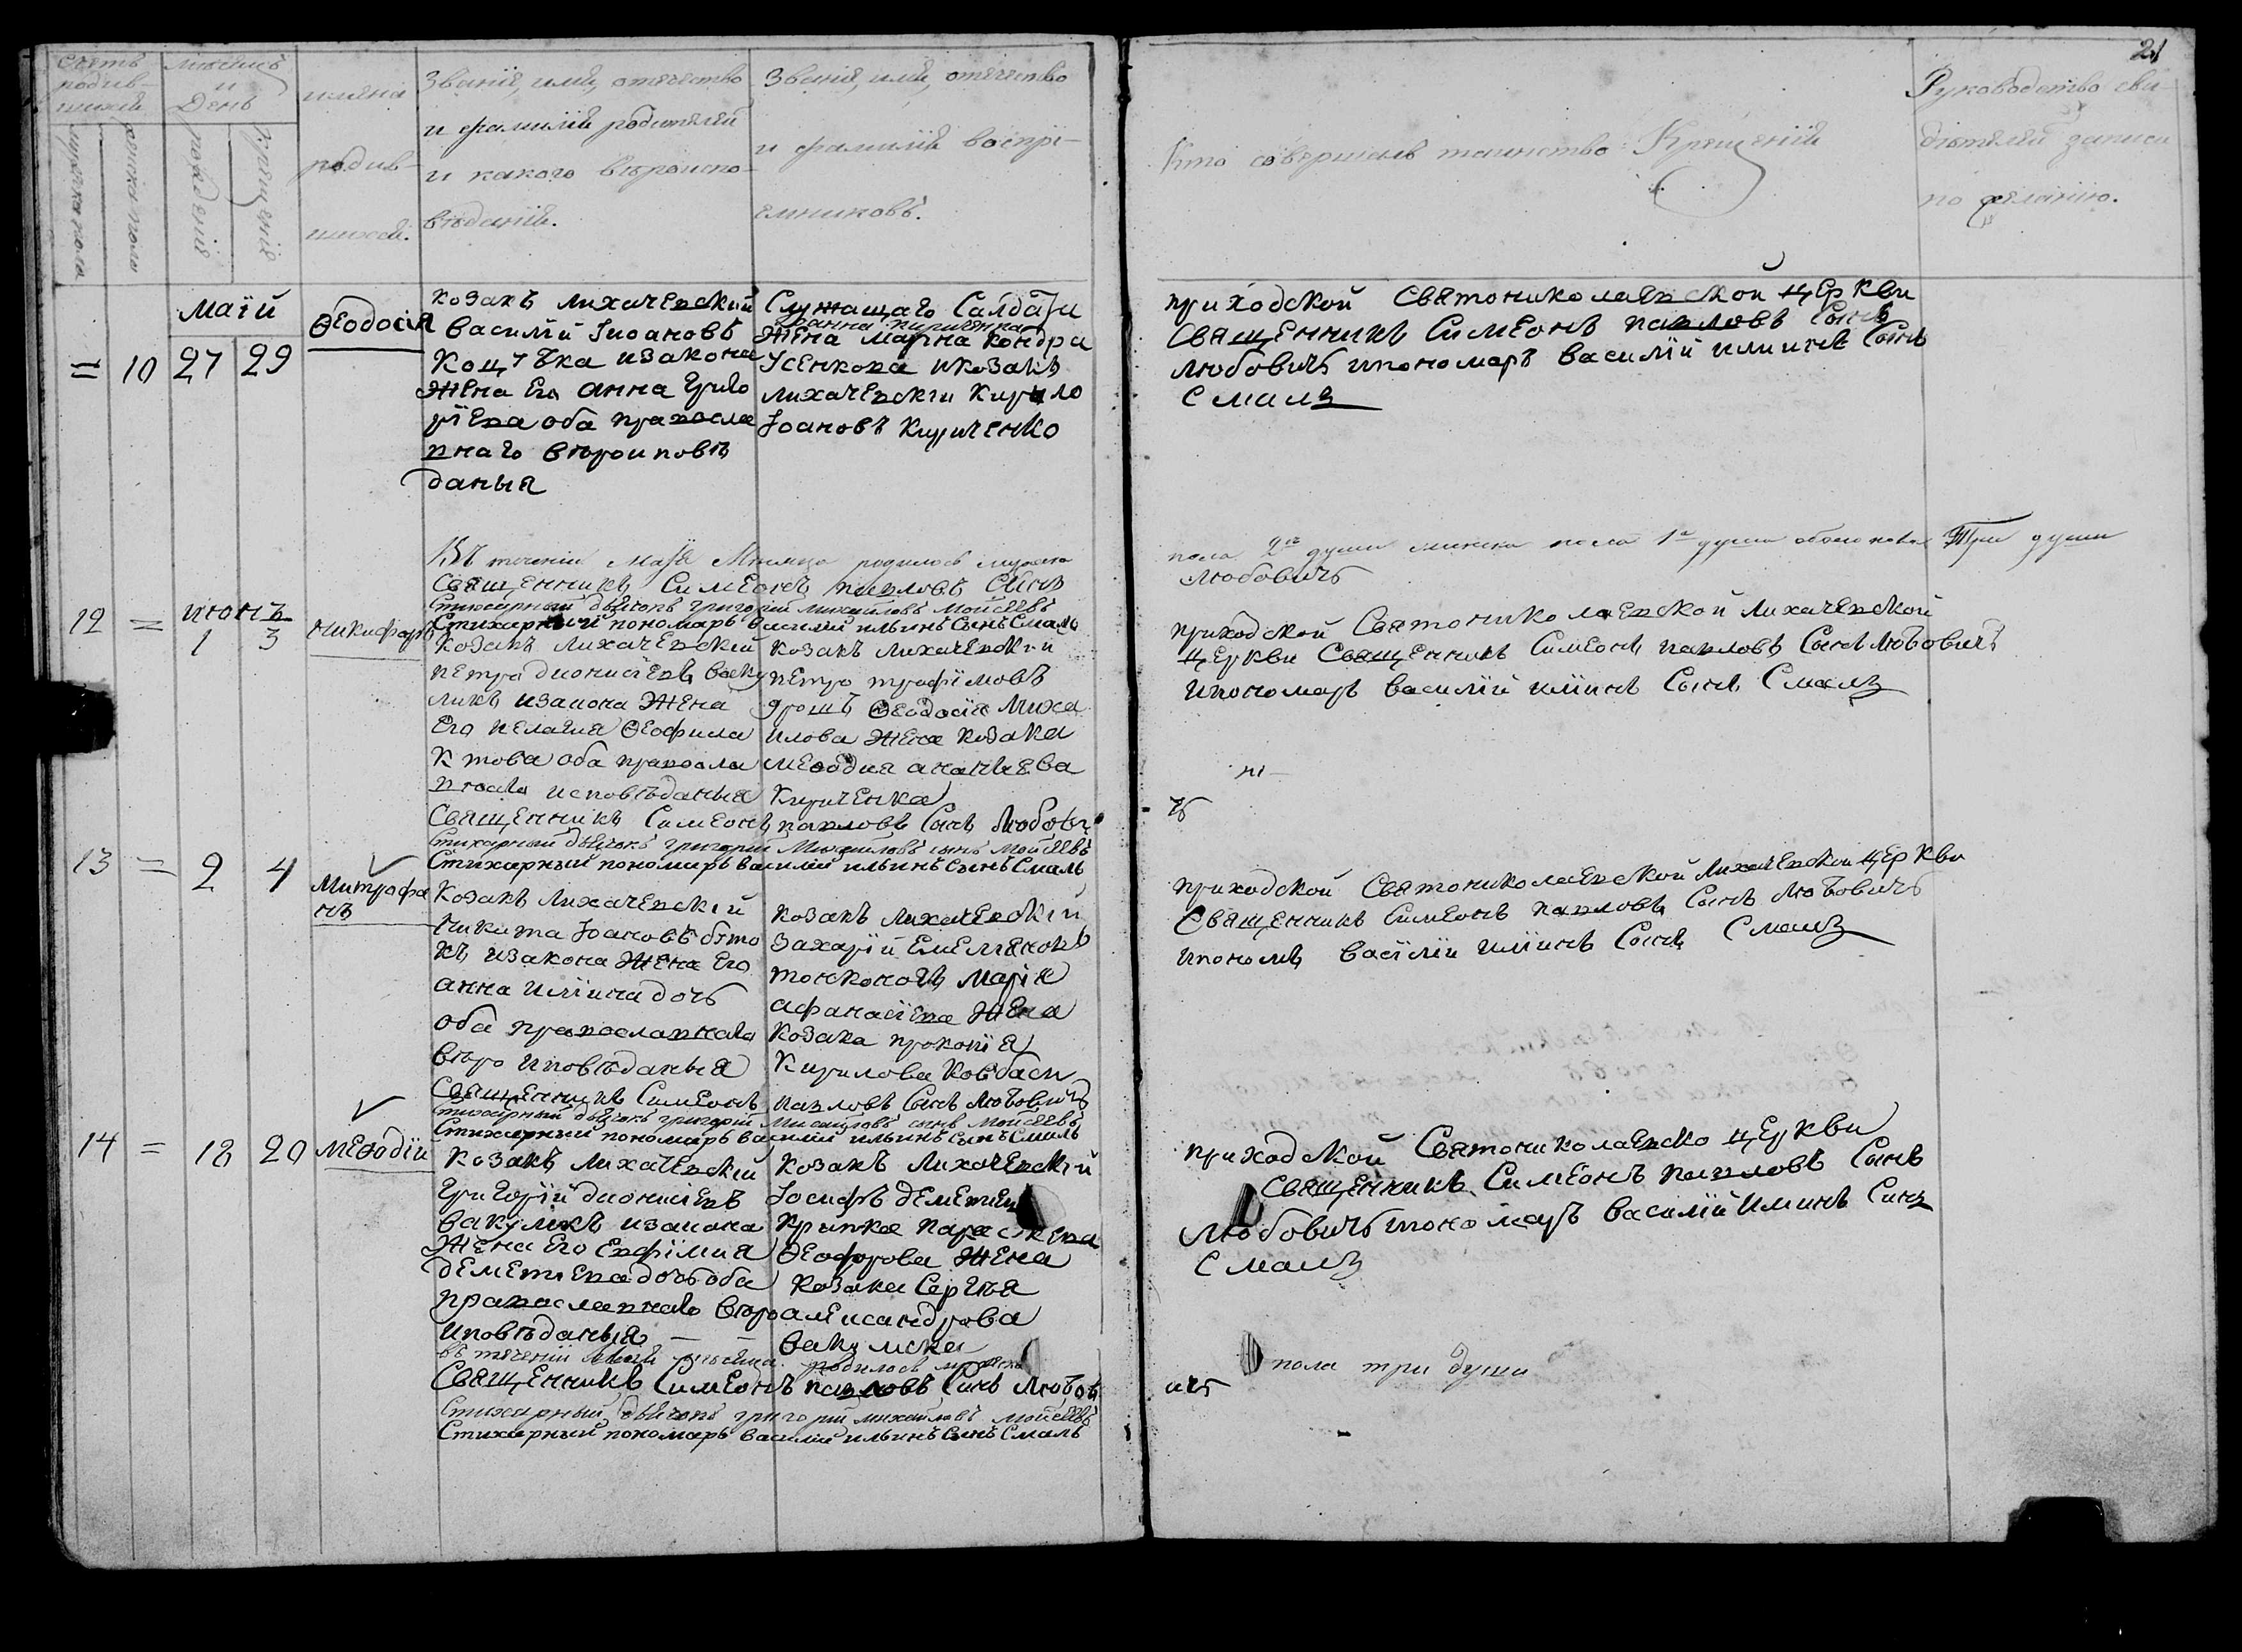 21
Счетъ родив-шихся
Мѣсяцъ и День
мужска пола
женска пола
рожденія
крещенія
имена родив-шихся.
Званіе, имя, отчество
и фамилія родителей
и какого вѣроиспо-
вѣданія.
Званіе, имя, отчество
и фамилія воспрі-
емниковъ.
Кто совершалъ таинство Крещенія
Руководство сви-
дѣтелей записи
по желанію.
маїй
= 10 27 29
Ѳеодосія
козакъ лихачевский
василий Іоановъ
Коцюбка изакона
жена его анна Григо
рїева оба правосла
внаго вѣроиповѣ
данья
Служащаго Салдата
жена марна кондра
Усенкова икозакъ
лихачевскїи Кирило
Іоановъ кириченко
приходской святониколаевской церкви
священникъ Симеонъ павловъ Сынъ
любовичъ ипономаръ василїй илиинъ Сынъ
Смаль
Въ теченіи мая Мѣсяца родилось мужска
пола 2ѣ души женска пола 1а душа обоего пола Три души
Священникъ Симеонъ павловъ Сынъ
любовичъ
Стихарный дьячокъ григорій михайловъ мойсѣевъ
Стихарный пономарь василій ильинъ сынъ Смаль
июнъ
12 = 1 3
никифоръ
козакъ лихачевский
петро дионисїевъ ваку
ликъ изакона жена
его пелагия Ѳеофила
ктова оба правосла
внаго исповѣданья
козакъ лихачевскїи
петро трофїмовъ
дрошъ Ѳеодосїя Миха
илова жена козака
меѳодия ананиева
Кириченка
приходской Святониколаевской лихачевской
церкви Священникъ Симеонъ павловъ Сынъ любовичъ
ипономаръ василїй илїинъ Сынъ Смаль
Священникъ Симеонъ павловъ Сынъ Любови
чъ
Стихарный дьячокъ григорій Михаиловъ сынъ мойсѣевъ
Стихарный пономарь василій ильинъ сынъ Смаль
13 = 2 4
Митрофа
нъ
козакъ Лихачевскїй
никита Іоановъ бѣто
къ изакона жена его
анна илїина дочъ
оба православнаго
вѣро иповѣданья
козакъ лихачевскїй
захарїй Емеляновъ
тонконогъ марїя
афанасїева жена
козака прокопїя
Кирилова Ковбаси
приходской Святониколаевской Лихачевской церкви
Священникъ Симеонъ павловъ Сынъ любовичъ
ипономъ васїлїи илїинъ Сынъ Смаль
Священникъ Симеонъ павловъ Сынъ любовичъ
Стихарный дьячокъ григорій Михайловъ сынъ мойсѣевъ
Стихарный пономарь василій ильинъ сынъ Смаль
14 = 18 20
меѳодїи
козакъ лихачевскїи
григорїй дионисїевъ
вакуликъ изакона
жена его евфїмия
деметїева дочъ оба
православнаго вѣро
иповѣданья
козакъ лихочевскїй
Іосифъ деметїевъ
Крыпка параскева
Ѳеофорова жена
козака Сергѣя
александрова
вакулика
приходской Святониколаевско церкви
священникъ Симеонъ павловъ Сынъ
Любовичъ ипономаръ василїй Илиинъ Синъ
Смаль
въ теченіи мѣсяца родилось мужска
пола три души
Священникъ Симеонъ павловъ Синъ любов
ичъ
Стихарный дьячокъ григорій михайловъ мойсѣевъ
Стихарный пономарь василій ильинъ сынъ Смаль